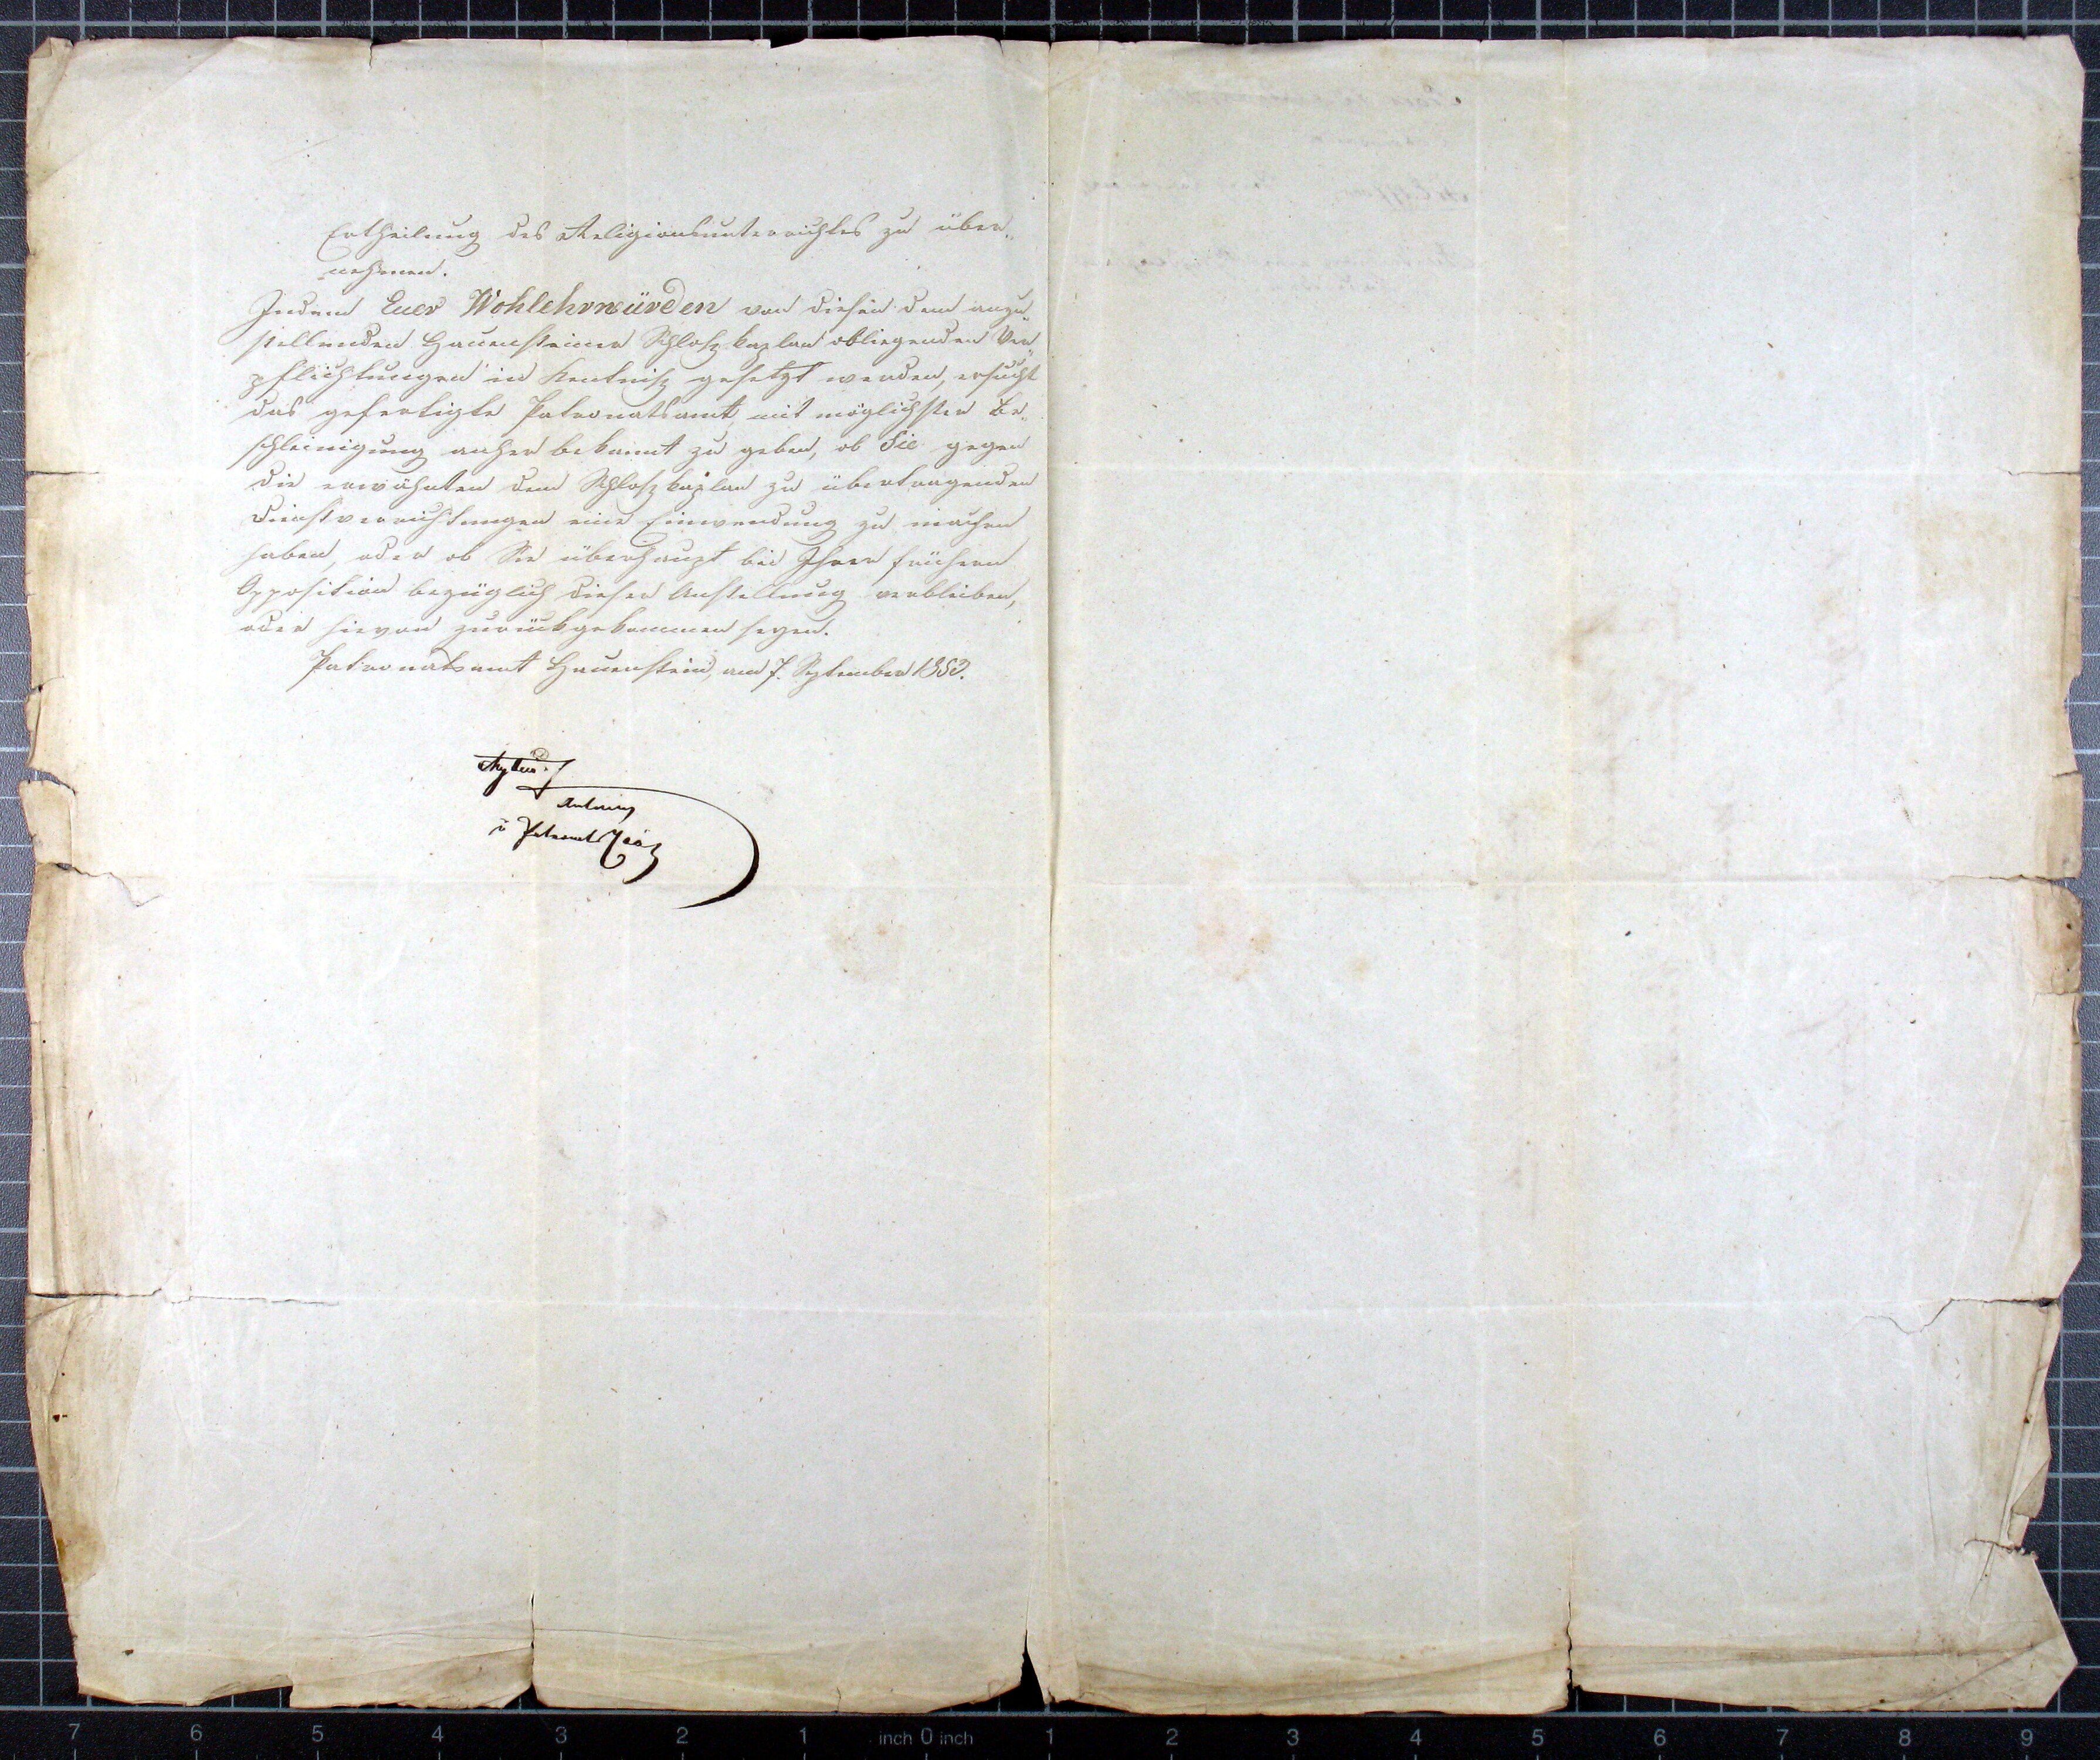 Ertheilung des Religionsunterrichtes zu über„
nehmen.
Indem Euer Wohlehrwürden von diesen dem anzu„
stellenden Hauensteiner Schloßkaplan obliegenden Ver„
pflichtungen in Kentniß gesetzt werden, ersucht
das gefertigte Patronatsamt mit möglichster Be„
schleinigung anher bekannt zu geben, ob Sie gegen
die erwähnten dem Schloßkaplan zu übertragenden
Dienstverrichtungen eine Einwendung zu machen
haben, oder ob Sie überhaupt bei Ihrer frühern
Opposition bezüglich dieser Anstellung verbleiben,
oder hievon zurückgekommen seyen.
Patronatsamt Hauenstein, am 7. September 1853.
inch 0 inch
7 6 5 4 3 2 1 1 2 3 4 5 6 7 8 9